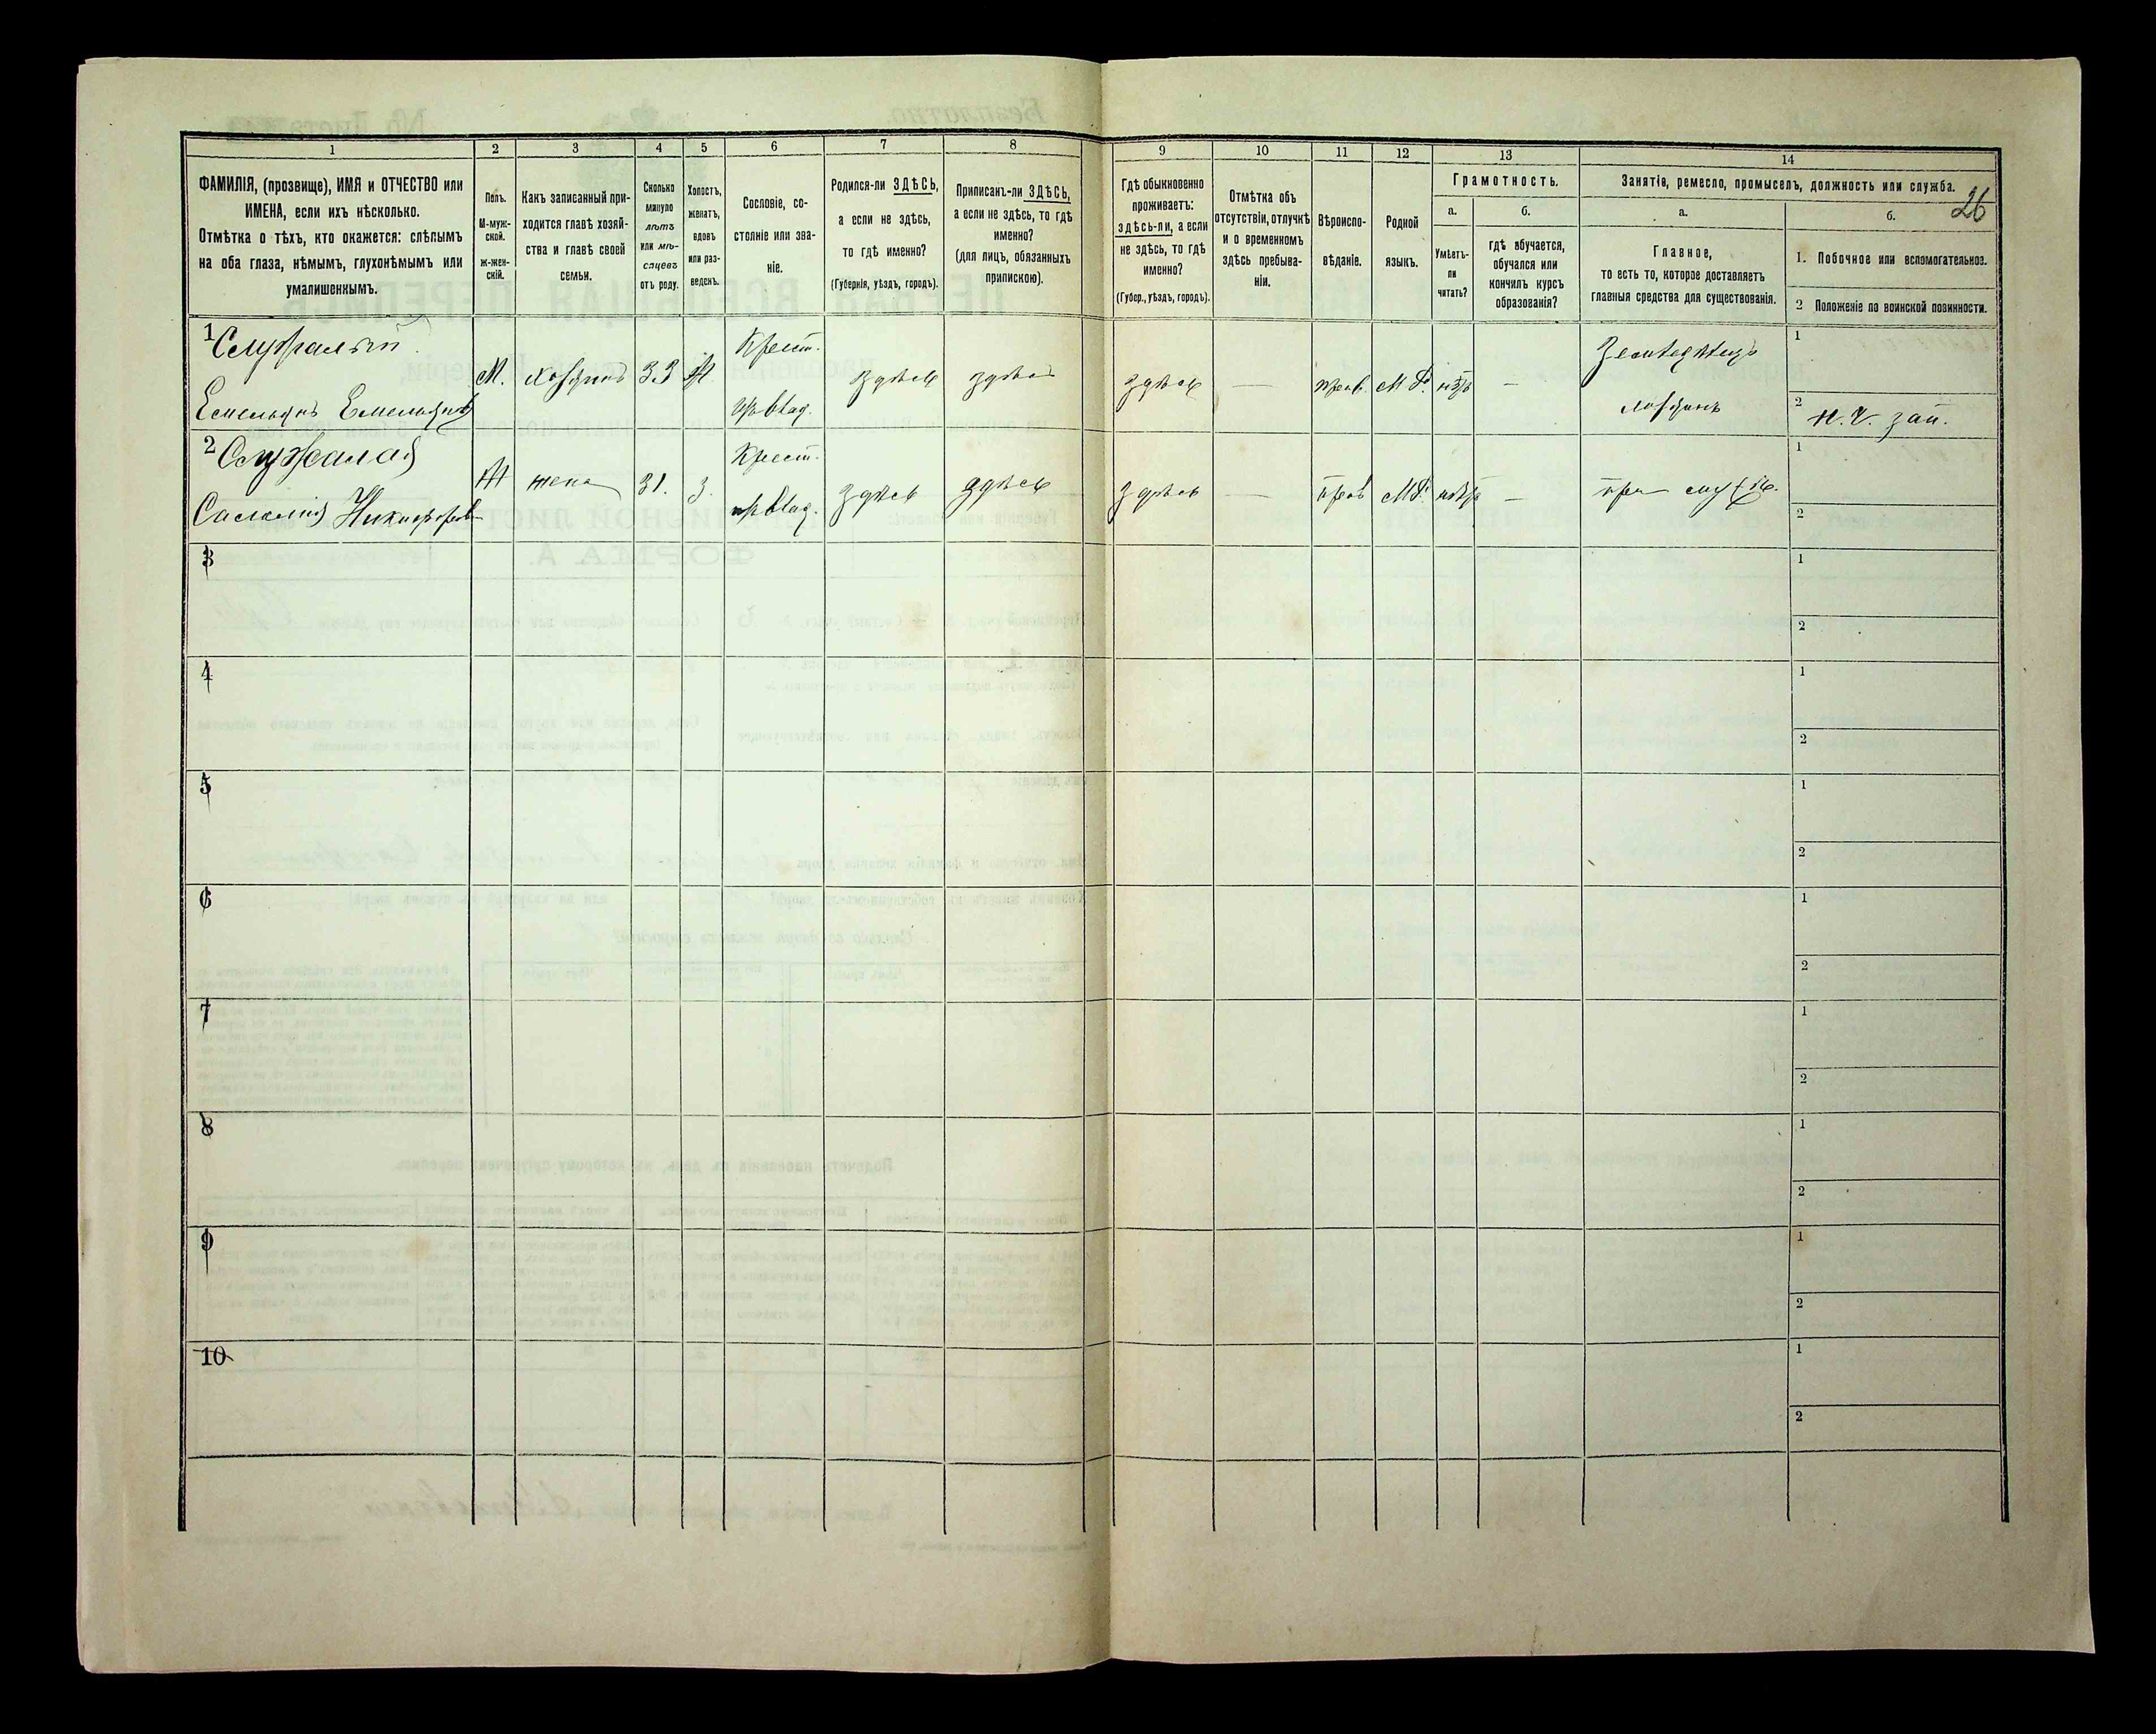 26
1 2 3 4 5 6 7 8 9 10 11 12 13 14
ФАМИЛІЯ, (прозвище), ИМЯ и ОТЧЕСТВО или
ИМЕНА, если ихъ нѣсколько.
Отмѣтка о тѣхъ, кто окажется: слѣпымъ
на оба глаза, нѣмымъ, глухонѣмымъ или
умалишеннымъ.
Полъ.
М-муж-
ской.
Ж-жен-
скій.
Какъ записанный при-
ходится главѣ хозяй-
ства и главѣ своей
семьи.
Сколько
минуло
лѣтъ
или мѣ-
сяцевъ
отъ роду.
Холостъ,
женатъ,
вдовъ
или раз-
веденъ.
Сословіе, со-
стояніе или зва-
ніе.
Родился-ли ЗДѢСЬ,
а если не здѣсь,
то гдѣ именно?
(Губернія, уѣздъ, городъ).
Приписанъ-ли ЗДѢСЬ,
а если не здѣсь, то гдѣ
именно?
(для лицъ, обязанныхъ
припискою).
Гдѣ обыкновенно
проживаетъ:
здѣсь-ли, а если
не здѣсь, то гдѣ
именно?
(Губер., уѣздъ, городъ).
Отмѣтка объ
отсутствіи, отлучкѣ
и о временномъ
здѣсь пребыва-
ніи.
Вѣроиспо-
вѣданіе.
Родной
языкъ.
Грамотность.
а.
Умѣетъ-
ли
читать?
б.
гдѣ обучается,
обучался или
кончилъ курсъ
образованія?
Занятіе, ремесло, промыселъ, должность или служба.
а.
Главное,
то есть то, которое доставляетъ
главныя средства для существованія.
б.
1. Побочное или вспомогательное.
2 Положеніе по воинской повинности.
1
Емельянъ Емельянов
М. хозяинъ 33 Ж
Крест.
здѣсь здѣсь здѣсь — прав. М.Р. —
Земледѣлецъ
хозяинъ
1
2 Н. Ч. зап.
2
Никифоров
Ж жена 31. З.
Крест.
здѣсь здѣсь здѣсь — прав МР. —
при
1
2
3 1
2
4 1
2
5 1
2
6 1
2
7 1
2
8 1
2
9 1
2
10 1
2